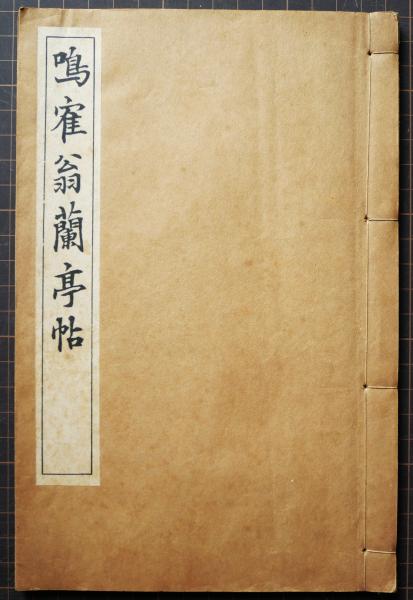 鳴隺翁蘭亭帖